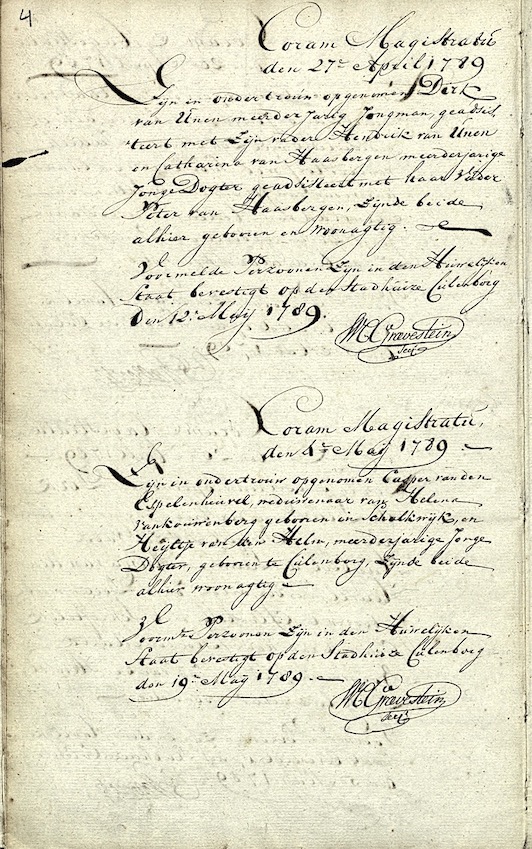 4
Coram Magistratu
den 27e April 1789
Zijn in ondertrouw opgenomen Dirk
van Unen meerderjarig Jongman, geadsis,
teert met Zijn vader Hendrik van Unen
en Catharina van Haasbergen meerderjarige
Jonge Dogter geadsisteert met haar Vader
Peter van Haasbergen, Zijnde beide
alhier gebooren en woonagtig.
Voormelde Perzoonen Zijn in den Huwelijken
Staat bevestigt op den Stadhuize Culenborg
Den 12e Maij 1789.
Grevestein
Secrs
Coram Magistratu,
den 4e Maij 1789
Zijn in ondertrouw opgenomen Casper van den
Espelenheuvel, weduwenaar van Helena
van kouwenberg gebooren in Schalkwijk, en
Heijltje van den Helm, meerderjarige Jonge
Dogter, gebooren te Culenborg, Zijnde beide
alhier woonagtig
Voorme Perzoonen Zijn in den Huwelijken
Staat bevestigt op den Stadhuize Culenborg
den 19e Maij 1789.
Grevestein
Secrs